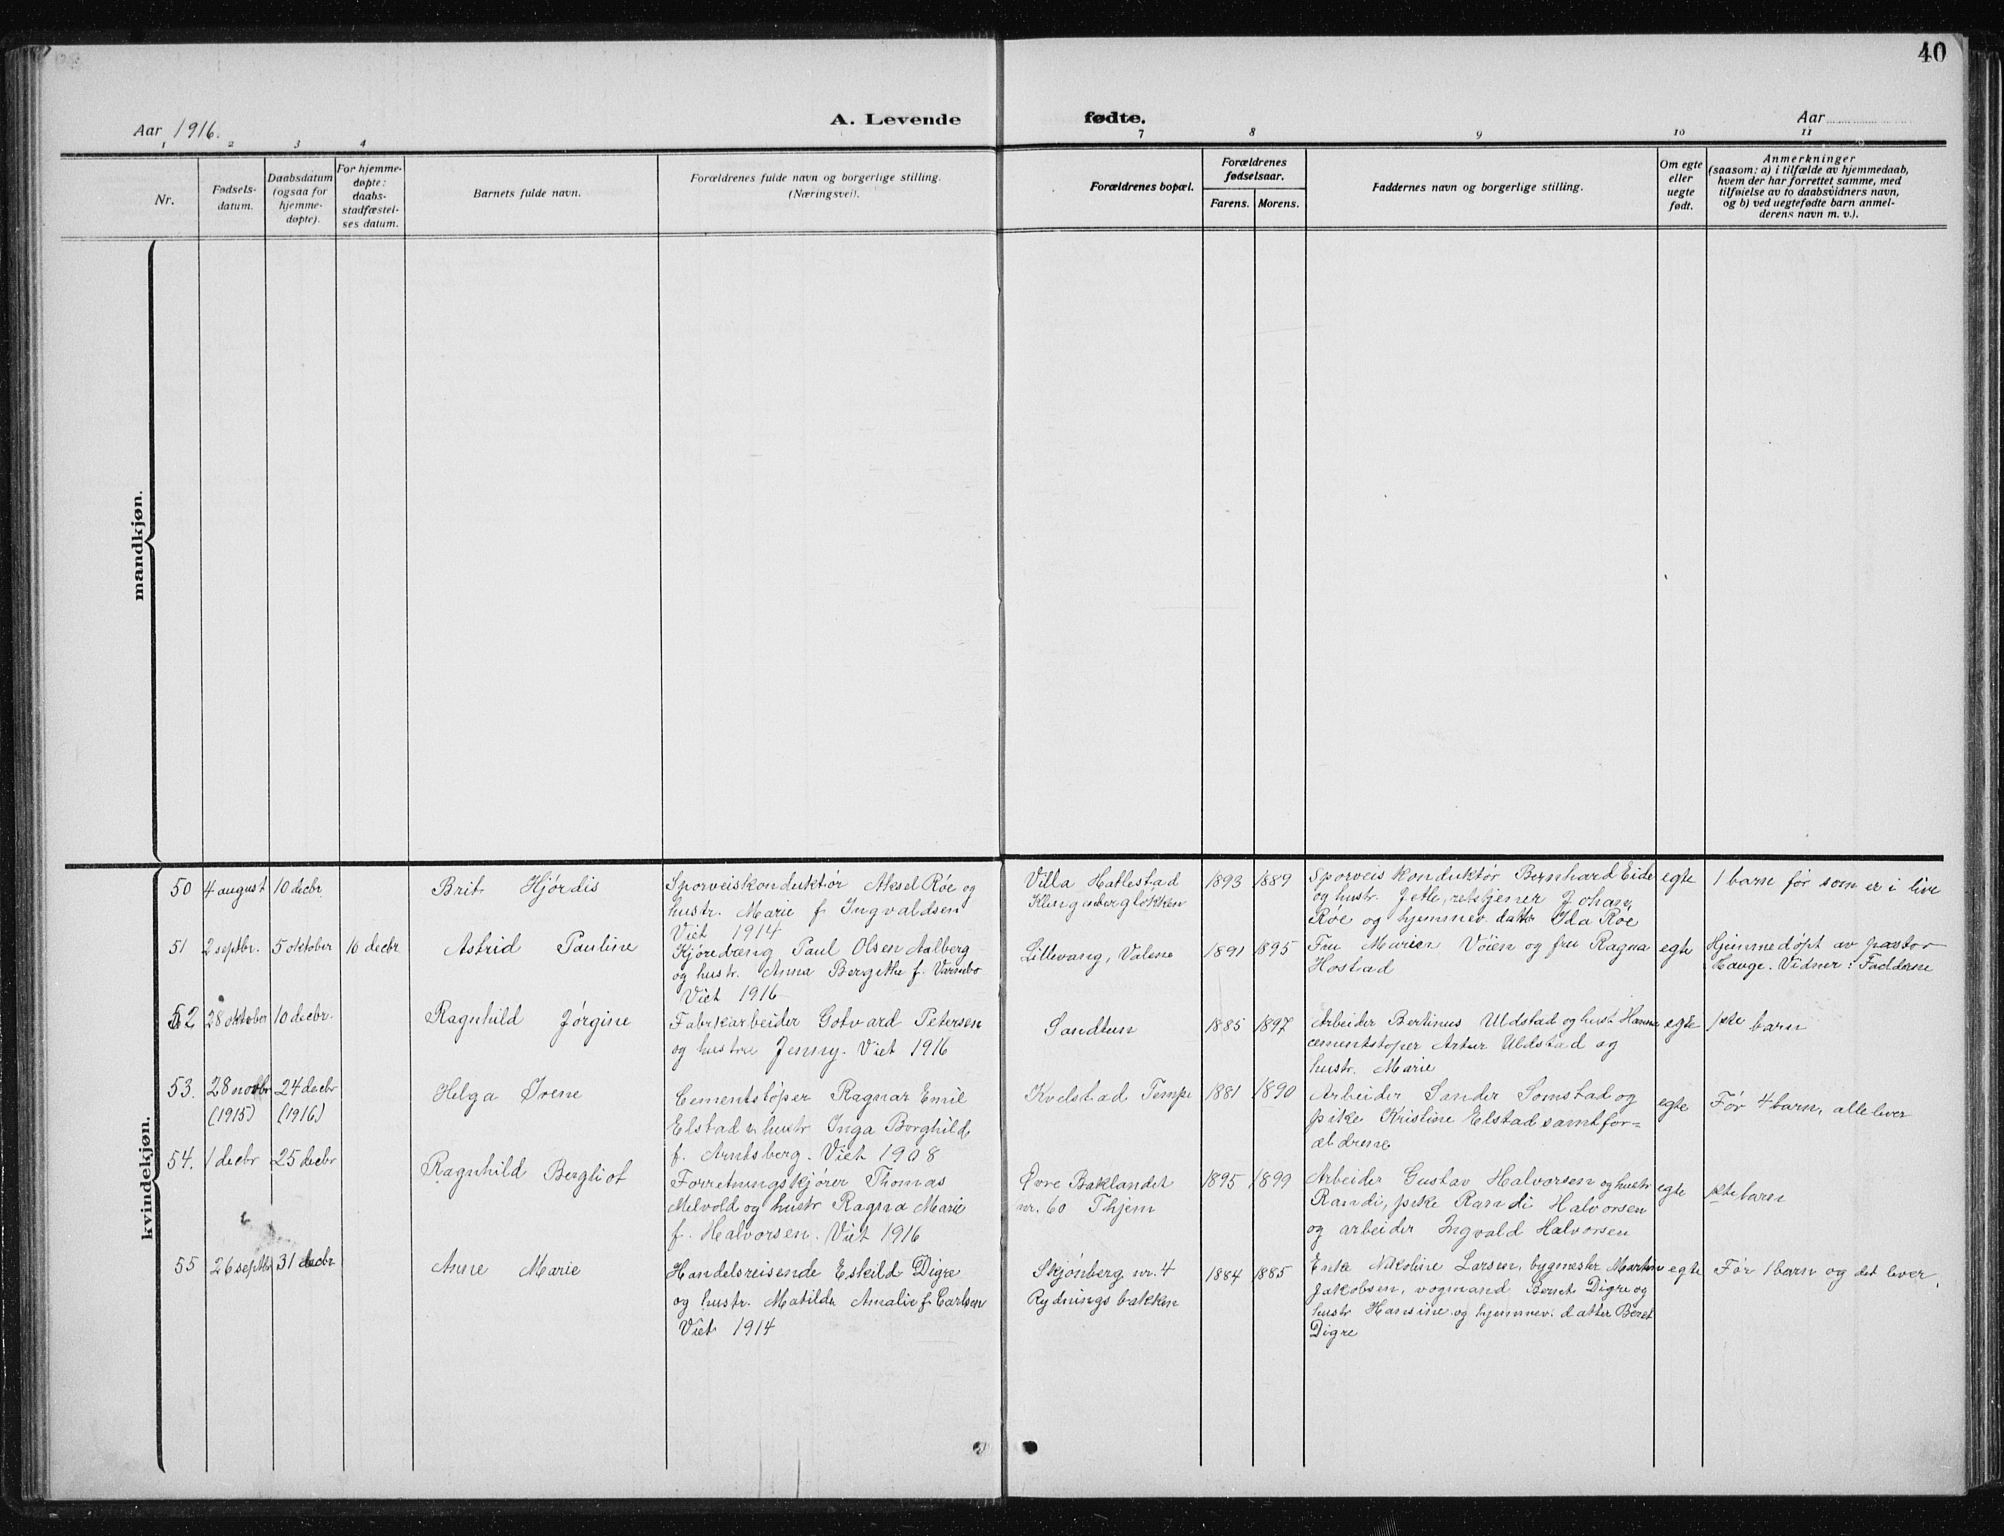 40
Aar 1916.
A. Levende fødte.
Aar
1 2 3 4 7 8 9 10 11
Nr.
Fødsels-
datum.
Daabsdatum
(ogsaa for
hjemme-
døpte).
For hjemme-
døpte:
daabs-
stadfæstel-
ses datum.
Barnets fulde navn.
Forældrenes fulde navn og borgerlige stilling.
(Næringsvei).
Forældrenes bopæl.
Forældrenes
fødselsaar.
Farens. Morens.
Faddernes navn og borgerlige stilling.
Om egte
eller
uegte
født.
Anmerkninger
(saasom: a) i tilfælde av hjemmedaab,
hvem der har forrettet samme, med
tilføielse av to daabsvidners navn,
og b) ved uegtefødte barn anmel-
derens navn m. v.).
mandkjøn.
kvindekjøn.
50 4 august 10 decbr
Brit Hjørdis
Sporveiskonduktør Aksel Røe og
hustr. Marie f. Ingvaldsen
Viet 1914
Villa Hatlestad
Klingenbergløkken
1893 1889
Sporveiskonduktør Bernhard Eide
og hustr. Jetle, retstjener Johan
Røe og hjemmev. datter Ida Røe
egte
1 barn før som er i live
51 2 septbr. 5 oktober 10 decbr
Astrid Pauline
Kjøredræng Paul Olsen Aalberg
og hustr. Anna Bergithe f. Varmbo
Viet 1916
Lillevang, Valene
1891 1895
Fru Marien Vöien og fru Ragna
Hostad
egte
Hjemmedøpt av pastor
Hauge. Vidner: Fadderne
52 28 oktober 10 decbr.
Ragnhild Jørgine
Fabrkarbeider Gotvard Petersen
og hustru Jenny. Viet 1916
Sandtun
1885 1897
Arbeider Bertinus Uldstad og hust Hanna
cementstøper Artur Uldstad og
hustr. Marie
egte
1ste barn
53. 28 novbr 24 decbr
(1915) (1916)
Helga Irene
Cementstøper Ragnar Emil
Elstad & hustr Inga Borghild
f. Arntsberg. Viet 1908
Kvelstad Tempe
1881 1890
Arbeider Sander Somstad og
pike Kristine Elstad samt for=
ældrene
egte
Før 4 barn, alle lever
54. 1 decbr 25 decbr
Ragnhild Bergliot
Forretningskjører Thomas
Melvold og hustr Ragna Marie
f. Halvorsen. Viet 1916
Øvre Baklandet
nr. 60 Thjem
1895 1899
Arbeider Gustav Halvorsen og hustr
Randi, pike Randi Halvorsen
og arbeider Ingvald Halvorsen
egte
1ste barn
55 26 septbr 31 decbr
Anne Marie
Handelsreisende Eskild Digre
og hustr. Matilde Amalie f. Carlsen
Viet 1914
Skjønberg nr. 4
Rydningsbakken
1884 1885
Enke Nikoline Larsen, bygmester Martin
Jakobsen, vogmand Bernt Digre og
hustr Hansine og hjemmev. datter Beret
Digre
egte
Før 1 barn og det lever.